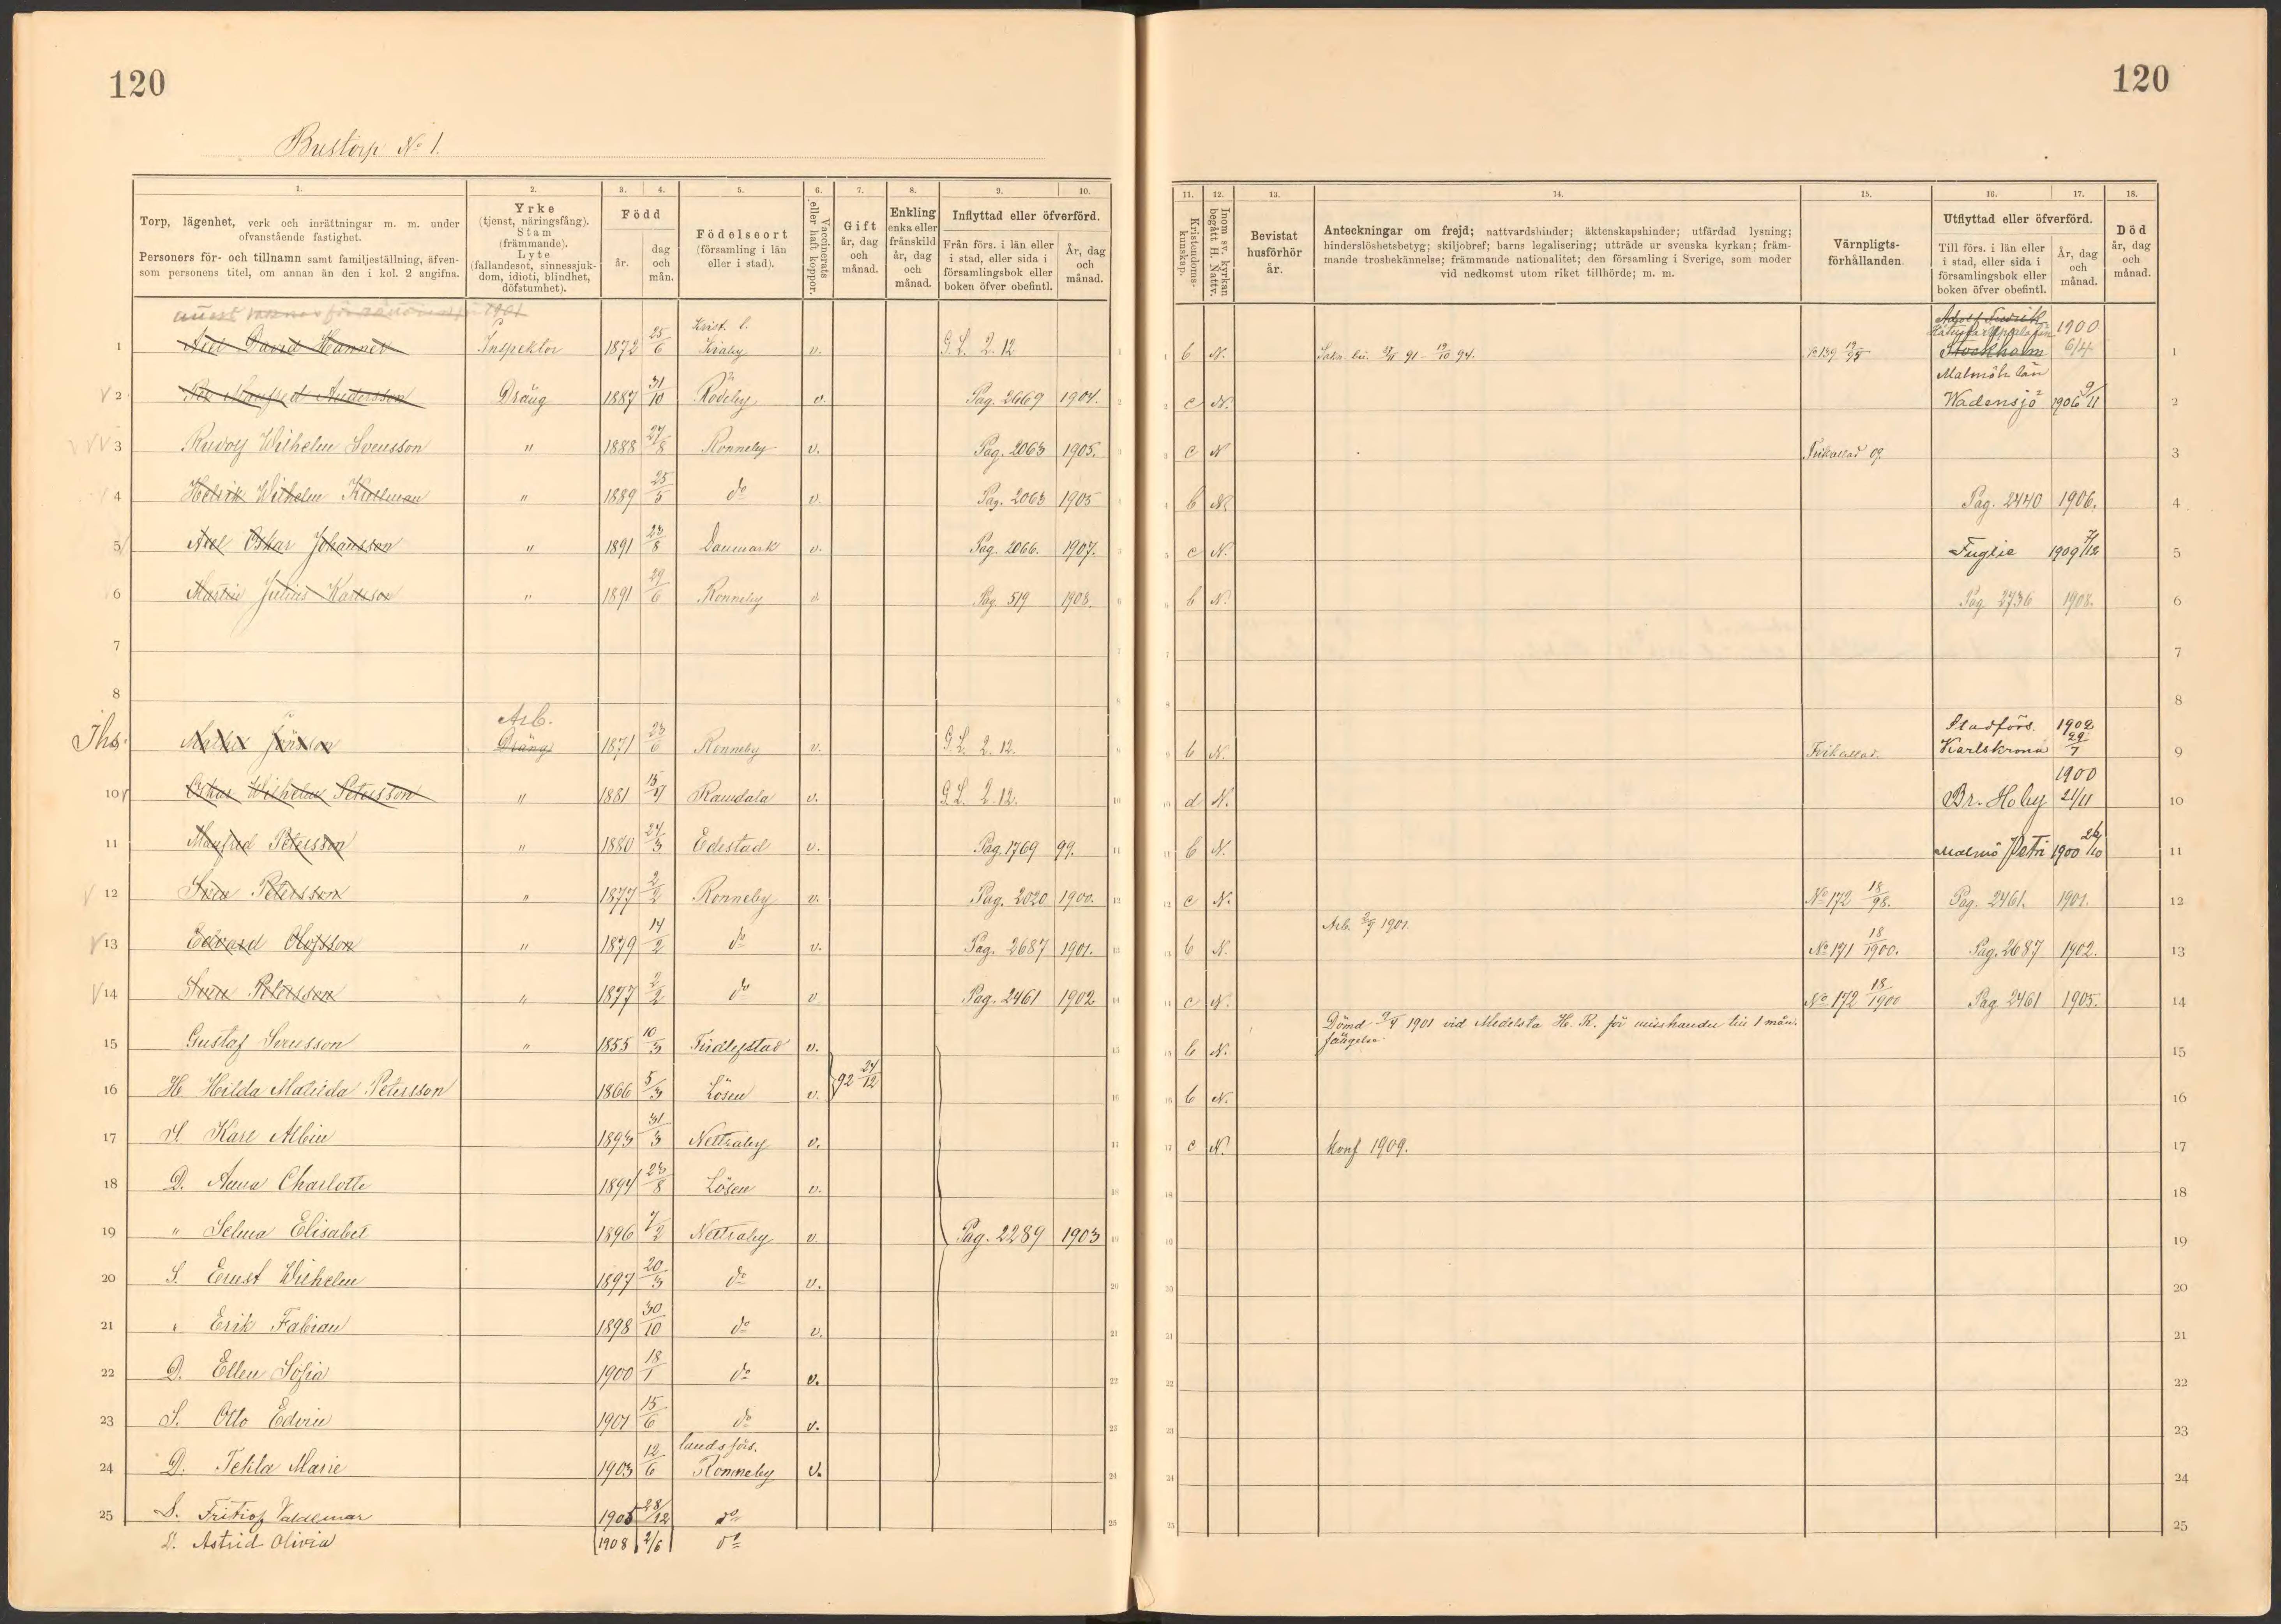 120
120
Bustorp No 1.
1. 2. 3. 4. 5. 6. 7. 8. 9. 10.
Torp, lägenhet, verk och inrättningar m. m. under ofvanstående fastighet.
Personers för- och tillnamn samt familjeställning, äfvensom personens titel, om annan än den i kol. 2 angifna.
Yrke (tjenst, näringsfång). Stam (främmande). Lyte (fallandesot, sinnessjukdom, idioti, blindhet, döfstumhet).
Född
år.
dag och mån.
Födelseort (församling i län eller i stad).
Vaccinerats eller haft koppor.
Gift år, dag och månad.
Enkling enka eller frånskild år, dag och månad.
Inflyttad eller öfverförd.
Från förs. i län eller i stad, eller sida i församlingsbok eller boken öfver obefintl.
År, dag och månad.
11. 12. 13. 14. 15. 16. 17. 18.
Kristendomskunskap.
Inom sv. kyrkan begått H. Nattv.
Bevistat husförhör år.
Anteckningar om frejd; nattvardshinder; äktenskapshinder; utfärdad lysning; hinderslöshetsbetyg; skiljobref; barns legalisering; utträde ur svenska kyrkan; främmande trosbekännelse; främmande nationalitet; den församling i Sverige, som moder vid nedkomst utom riket tillhörde; m. m.
Värnpligtsförhållanden.
Utflyttad eller öfverförd.
Till förs. i län eller i stad, eller sida i församlingsbok eller boken öfver obefintl.
År, dag och månad.
Död år, dag och månad.
1901
Krist. l.
Adolf Fredrik
1 Axel David Inspektor 1872 25/6 v. G. L. 2. 12 b N. No 139 Stockholm 1900 6/4
Malmöh. län
2 Per Manfred Andersson Dräng 1887 31/10 Rödeby v. Pag. 2669 1904. c N. Wadensjö 1906 9/11
3 Rudolf Wilhelm Svensson " 1888 27/8 Ronneby v. Pag. 2063 1905. c N Frikallad 09.
4 Henrik Wilhelm Kullman " 1889 25/5 do v. Pag. 2063 1905 b N. Pag. 2440 1906.
5 Axel Oskar Johansson " 1891 23/8 Danmark v. Pag. 2066. 1907. c N. Fuglie 1909 7/12
6 Martin Julius Karlsson " 1891 29/6 Ronneby v. Pag. 519 1908 b N. Pag. 2736 1908.
7
8
Arb. Stadförs. 1902
9 Jönsson Dräng 1871 23/6 Ronneby v. G. L. 2. 12. b N. Frikallad. Karlskrona 29/7
10 Oskar Wilhelm Petersson " 1881 Ramdala v. G. L. 2. 12. d N. Br. Hoby 1900 21/11
11 Manfred Petersson " 1880 24/3 Edestad v. Pag. 1769 99. b N. Malmö Petri 1900 26/10
12 Sven Petersson " 1877 2/2 Ronneby v. Pag. 2020 1900. c N. No 172 18/98. Pag. 2461. 1901.
13 Edvard Olofsson " 1879 14/2 do v. Pag. 2687 1901. b N. Arb. 1901. No 171 18/1900. Pag. 2687 1902.
14 Sven Petersson " 1877 2/2 do v. Pag. 2461 1902 c N. No 172 18/1900 Pag. 2461 1905.
15 Gustaf Svensson " 1855 10/3 Fridlefstad v. b N. Dömd 9/9 1901 vid Medelsta H. R. för misshandel till 1 mån. fängelse
16 H Hilda Matilda Petersson 1866 5/3 Lösen v. 92 24/12 b N.
17 S. Karl Albin 1893 31/3 Nettraby v. c N. Konf 1909.
18 D. Anna Charlotta 1894 23/8 Lösen v.
19 " Selma Elisabet 1896 7/2 Nettraby v. Pag. 2289 1903
20 S. Ernst Wilhelm 1897 20/3 do v.
21 " Erik Fabian 1898 30/10 do v.
22 D. Ellen Sofia 1900 18/1 do v.
23 S. Otto Edvin 1901 15/6 do v.
landsförs.
24 D. Tekla Marie 1903 12/6 Ronneby v.
25 S. Fritiof Valdemar 1905 28/12 do
D. Astrid Olivia 1908 2/6 do